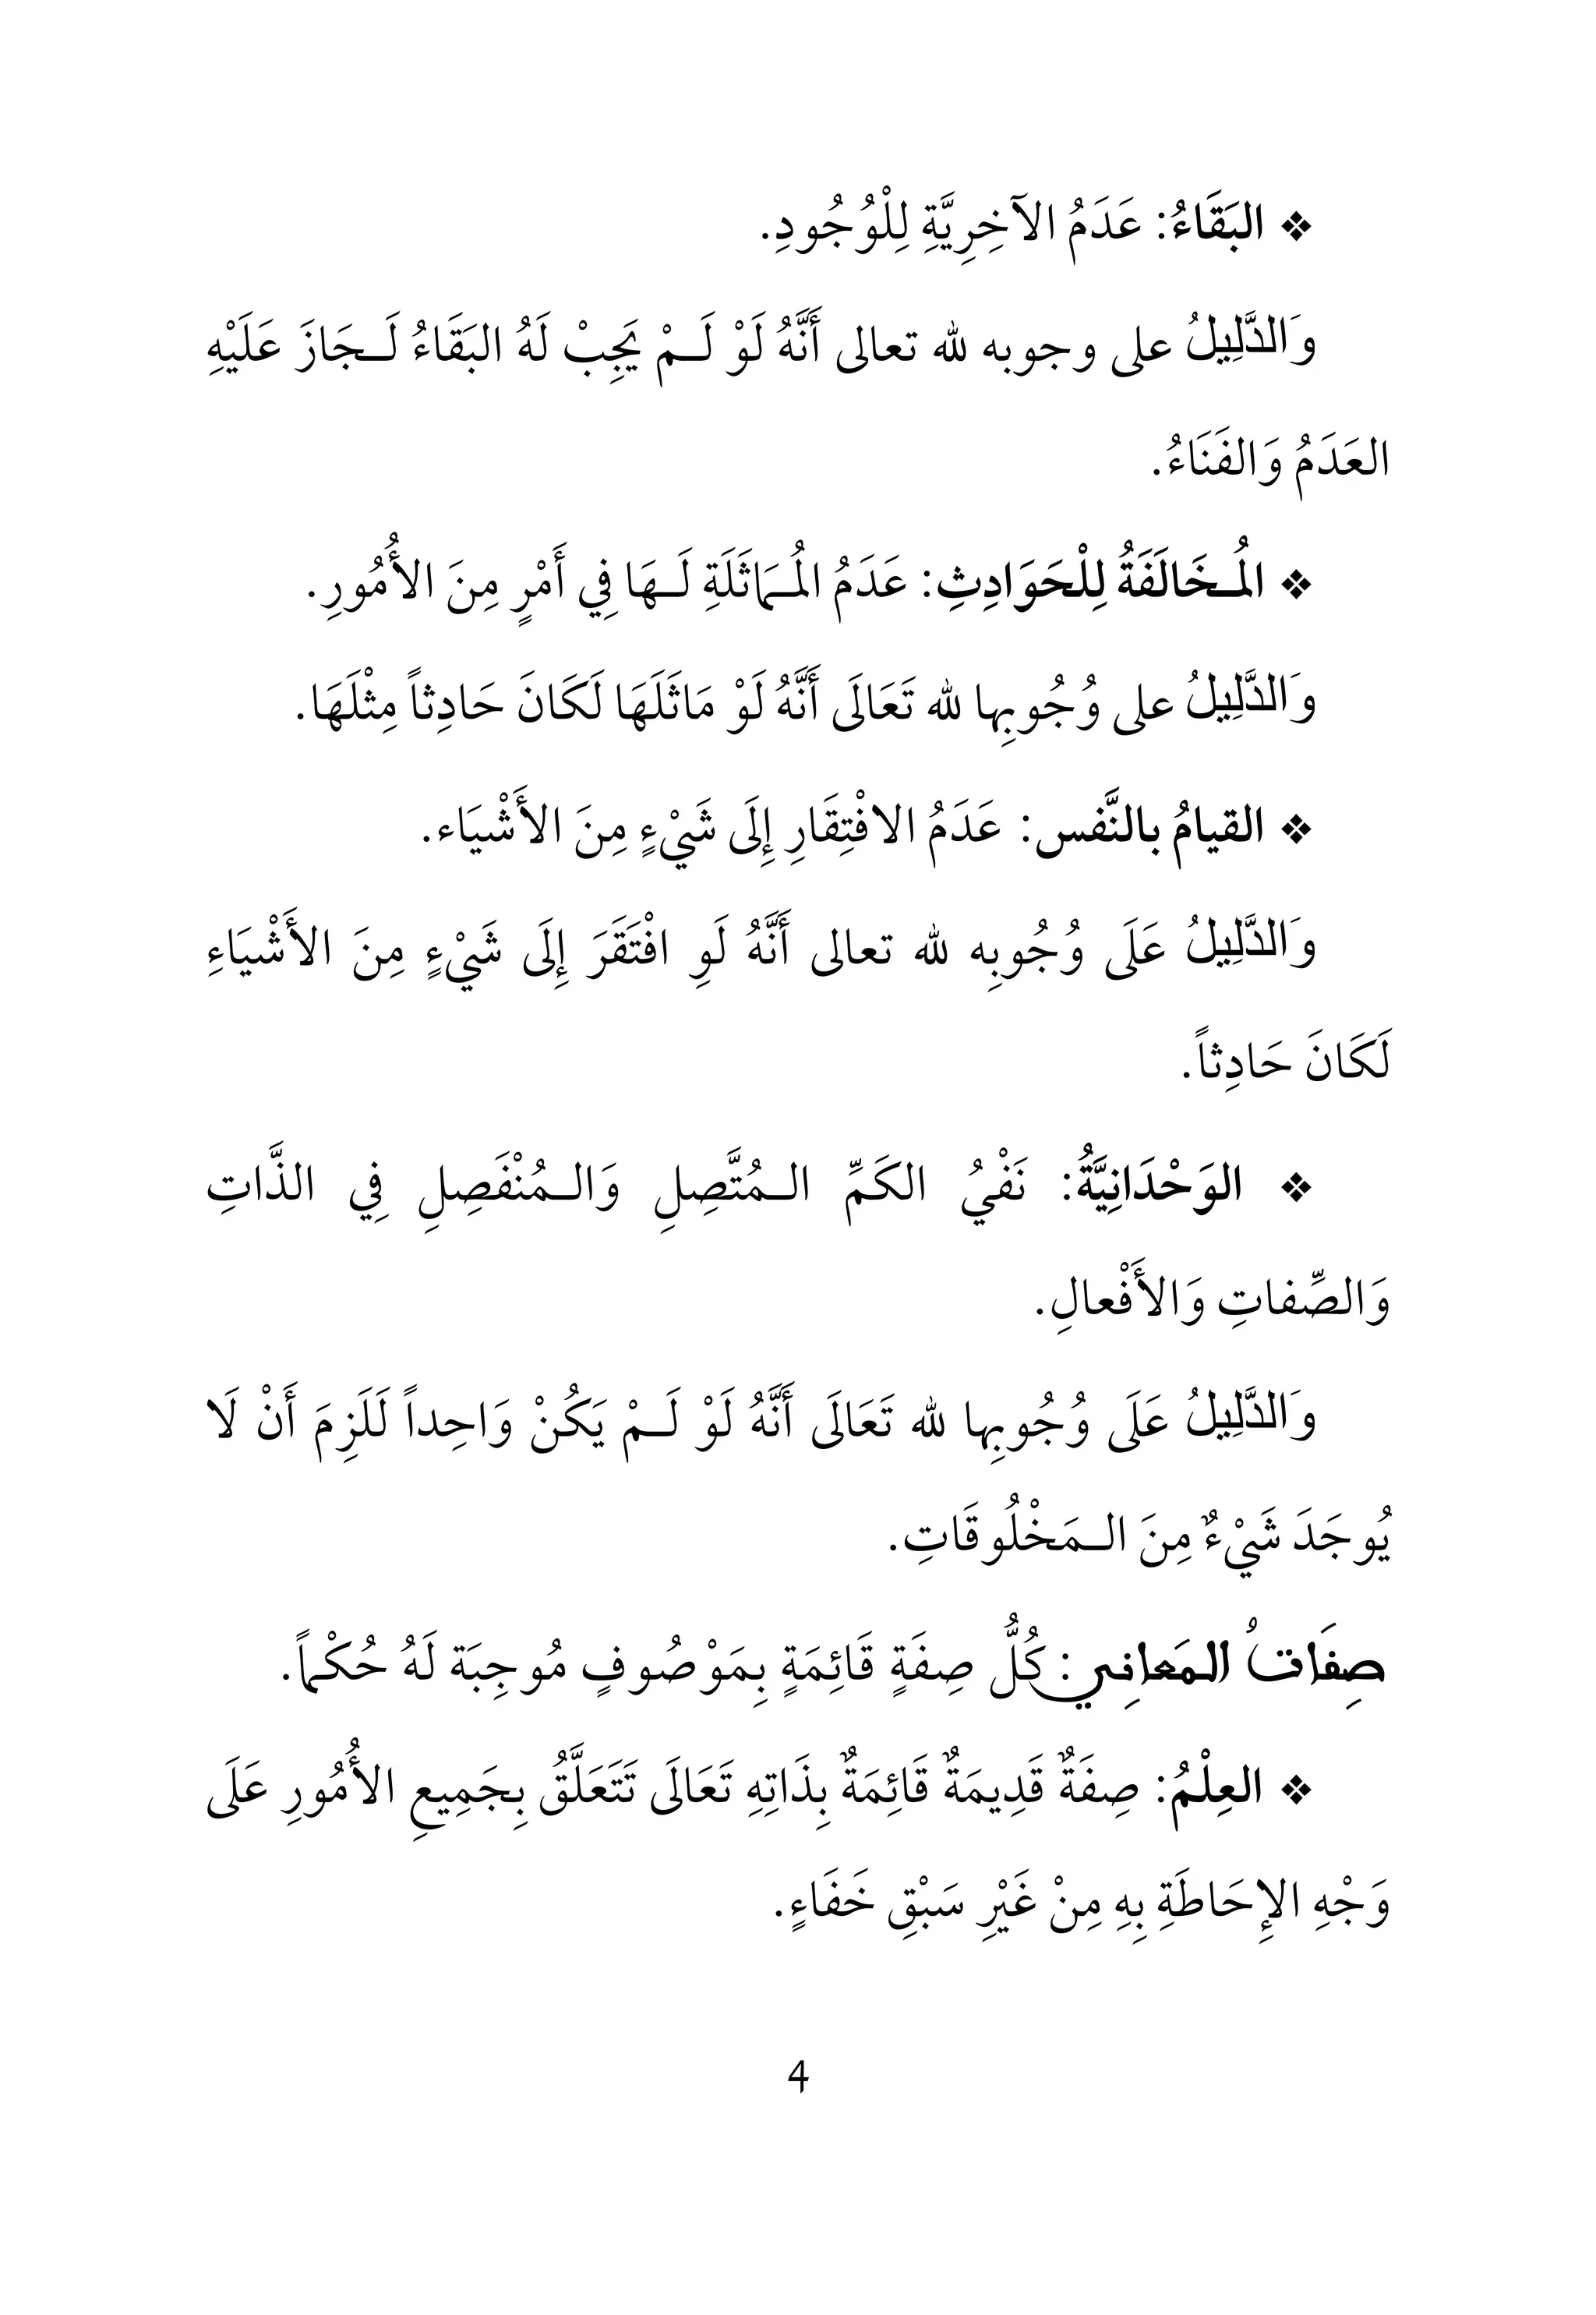 ❖ البَقَاءُ: عَدَمُ الآخِرِيَّةِ لِلْوُجُودِ.
وَالدَّلِيلُ على وجوبه لله تعالى أَنَّهُ لَوْ لَـمْ يَجِبْ لَهُ البَقَاءُ لَـجَازَ عَلَيْهِ
العَدَمُ وَالفَنَاءُ.
❖ المُـخَالَفَةُ لِلْحَوَادِثِ: عَدَمُ المُـمَاثَلَةِ لَـهَا فِي أَمْرٍ مِنَ الأُمُورِ.
وَالدَّلِيلُ على وُجُوبِها لله تَعَالَى أَنَّهُ لَوْ مَاثَلَهَا لَكَانَ حَادِثاً مِثْلَهَا.
❖ القيامُ بالنَّفس: عَدَمُ الافْتِقَارِ إِلَى شَيْءٍ مِنَ الأَشْيَاء.
وَالدَّلِيلُ عَلَى وُجُوبِه لله تعالى أَنَّهُ لَوِ افْتَقَرَ إِلَى شَيْءٍ مِنَ الأَشْيَاءِ
لَكَانَ حَادِثاً.
❖ الوَحْدَانِيَّةُ: نَفْيُ الكَمِّ الـمُتَّصِلِ وَالـمُنْفَصِلِ فِي الذَّاتِ
وَالصِّفاتِ وَالأَفْعالِ.
وَالدَّلِيلُ عَلَى وُجُوبِها لله تَعَالَى أَنَّهُ لَوْ لَـمْ يَكُنْ وَاحِداً لَلَزِمَ أَنْ لَا
يُوجَدَ شَيْءٌ مِنَ الـمَخْلُوقَاتِ.
صِفَاتُ المَعانِي: كُلُّ صِفَةٍ قَائِمَةٍ بِمَوْصُوفٍ مُوجِبَة لَهُ حُكْماً.
❖ العِلْمُ: صِفَةٌ قَدِيمَةٌ قَائِمَةٌ بِذَاتِهِ تَعَالَى تَتَعَلَّقُ بِجَمِيعِ الأُمُورِ عَلَى
وَجْهِ الإِحَاطَةِ بِهِ مِنْ غَيْرِ سَبْقِ خَفَاءٍ.
4